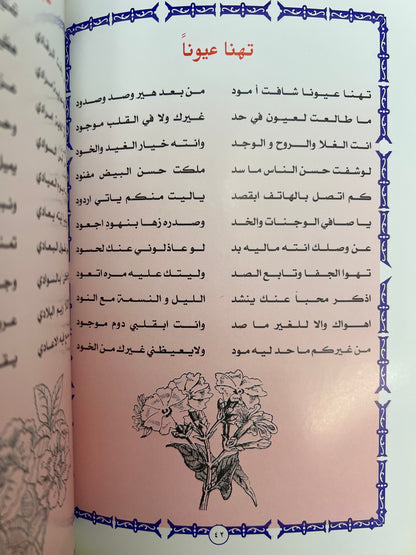 تهنا عيوناً
تهنا عيونا شافت أ مود من بعد هير وصد وصدود
ما طالعت لعيون في حد غيرك ولا في القلب موجود
انت الغلا والروح و الوجد وانته خيار الغيد والخود
لوشفت حسن الناس ما سد ملكت حسن البيض مفنود
كم اتصل بالهاتف ابقصد ياليت منكم ياتي اردود
يا صافي الوجنات والخد وصدره زها بنهودٍ اجعود
عن وصلك انته ماليه بد لو عاذلوني عنك لحسود
تهوا الجفا وتابع الصد وليتك عليه مره اتعود
اذكر محباً عنك ينشد الليل و النسمة مع النود
اهواك والا للغير ما صد وانت ابقلبي دوم موجود
من غيركم ما حد ليه مود ولايعيظني غيرك من الخود
٤٢